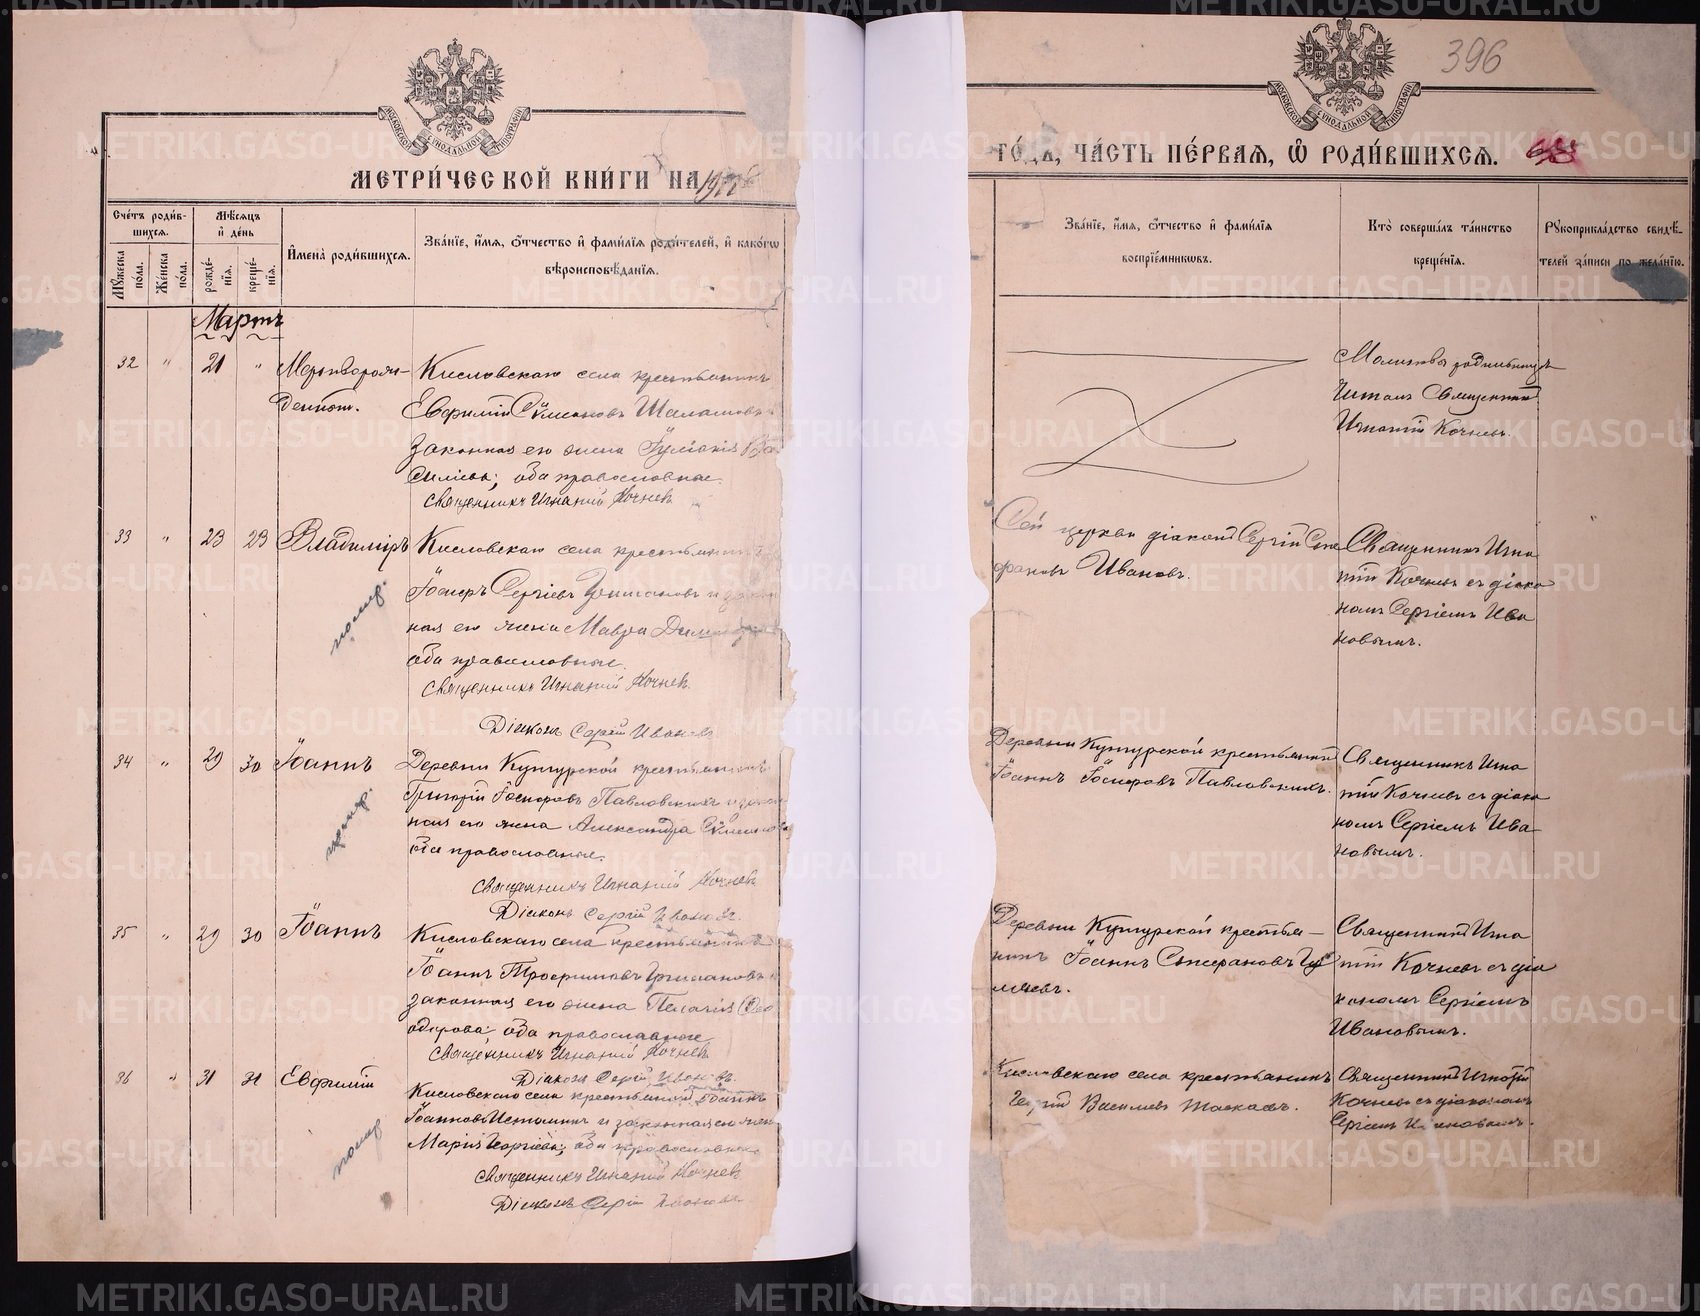 МЕТРИ́ЧЕСКОЙ КНИ́ГИ НА
Сче́тъ роди́в-
шихсѧ.
Мѣ́сѧцъ
и҆ де́нь
Мꙋ́жеска по́ла.
Же́нска по́ла.
рожде́-
нїѧ.
креще́-
нїѧ.
И҆мена̀ роди́вшихсѧ.
Зва́нїе, и҆́мѧ, ѻ҆́тчество и҆ фами́лїѧ роди́телей, и҆ како́гѡ
вѣроисповѣ́данїѧ.
Мартъ
32 " 21 "
Мертворож-
денный.
Кисловскаго села крестьянинъ
Евфимій Сѷмеоновъ Шаламовъ
законная его жена Іуліанія Ва
сильева; оба православные.
Священникъ Игнатій Кочневъ
33 " 23 23
Владиміръ
помер.
Кисловскаго села крестьянинъ
Іосифъ Сергіевъ
ная его жена Мавра
оба православные.
Священникъ Игнатій Кочнев.
Діаконъ Сергій Ивановъ
34 " 29 30
Іоаннъ
помер.
Деревни Кутурской крестьянинъ
Григорій Іосифовъ Павловскихъ и закон
ная его жена Александра
оба православные.
Священникъ Игнатій Кочневъ
Діаконъ Сергій Ивановъ.
35 " 29 30
Іоаннъ
Кисловскаго села крестьянинъ
Іоаннъ Трофимовъ
законная его жена Пелагія Ѳео
дорова; оба православные
Священникъ Игнатій Кочневъ
Діаконъ Сергій Ивановъ.
36 " 31 31
Евфимій
помер
Кисловскаго села крестьянинъ Іоаннъ
Іоанновъ Истоминъ и законная его жена
Марія Георгіева; оба православные
Священникъ Игнатій Кочневъ
Діаконъ Сергій Ивановъ
396
ГО́ДЪ, ЧА́СТЬ ПЕ́РВАѦ, Ѡ҆ РОДИ́ВШИХСѦ.
Зва́нїе, и҆́мѧ, ѻ҆́тчество и҆ фами́лїѧ
воспрїе́мникѡвъ.
Кто̀ соверша́лъ та́инство
креще́нїѧ.
Рꙋкоприкла́дство свидѣ́-
телей за́писи по жела́нїю.
Молитвы родильницѣ
читалъ Священникъ
Игнатій Кочневъ.
Сей церкви діаконъ Сергій Сте
фановъ Ивановъ.
Священникъ Игна
тій Кочневъ съ діако
номъ Сергіемъ Ива
новымъ.
Деревни Кутурской крестьянинъ
Іоаннъ Іосифовъ Павловскихъ.
Священникъ Игна
тій Кочневъ съ діако
номъ Сергіемъ Ива
новымъ.
Деревни Кутурской крестья-
нинъ Іоаннъ Стефановъ
Священникъ Игна
тій Кочневъ съ діа
кономъ Сергіемъ
Ивановымъ.
Кисловскаго села крестьянинъ
Георгій Васильевъ
Священникъ Игнатій
Кочневъ съ діакономъ
Сергіемъ Ивановымъ.
METRIKI.GASO-URAL.RU